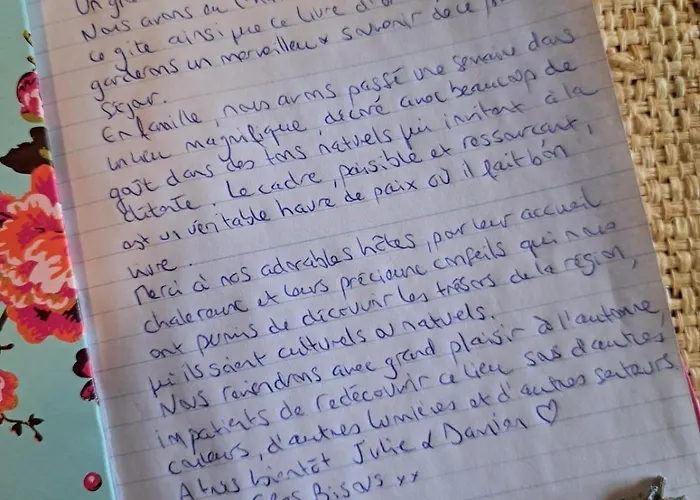 Un
Nous avons eu
ce gîte ainsi que ce livre d'
garderons un merveilleux souvenir de ce
séjour.
En famille, nous avons passé une semaine dans
un lieu magnifique, décoré avec beaucoup de
goût dans des tons naturels qui invitent à la
détente. Le cadre, paisible et ressourçant,
est un véritable havre de paix où il fait bon
vivre.
Merci à nos adorables hôtes, pour leur accueil
chaleureux et leurs précieux conseils qui nous
ont permis de découvrir les trésors de la région,
qu'ils soient culturels ou naturels.
Nous reviendrons avec grand plaisir à l'automne,
impatients de redécouvrir ce lieu sous d'autres
couleurs, d'autres lumières et d'autres senteurs.
A très bientôt Julie & Damien ♡
Gros Bisous xx